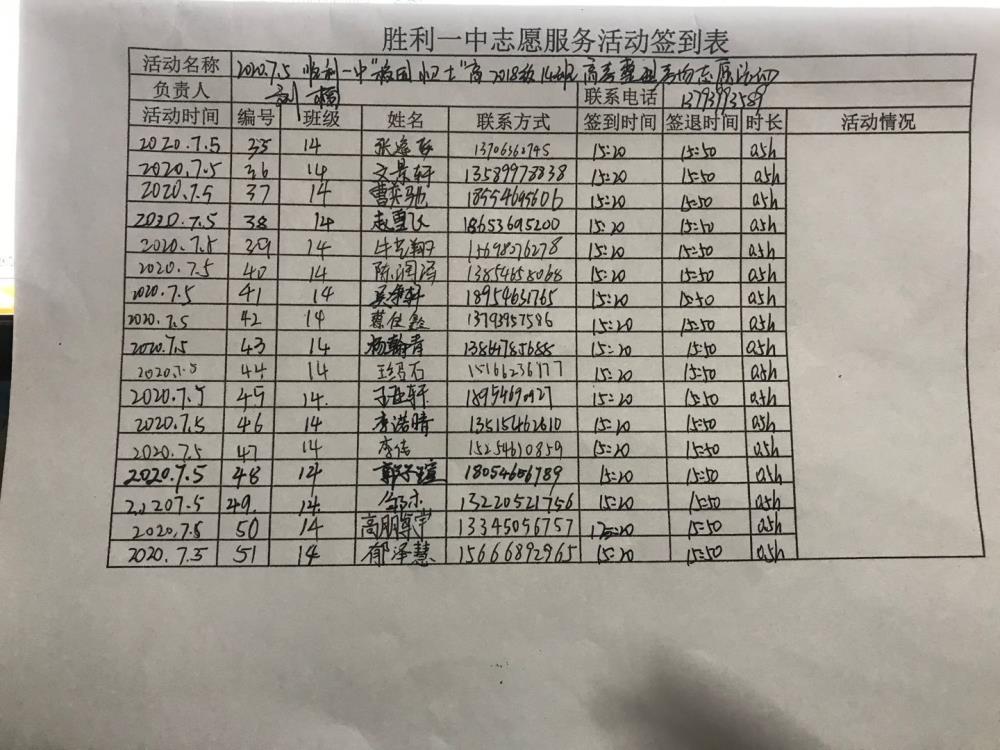 胜利一中志愿服务活动签到表
活动名称 2020.7.5 胜利一中"校园卫士"高2018级14班高考 志愿活动
负责人 刘 联系电话 13793993589
活动时间 编号 班级 姓名 联系方式 签到时间 签退时间 时长 活动情况
2020.7.5 35 14 张 13706362745 15:20 15:50 0.5h
2020.7.5 36 14 文景轩 13589978838 15:20 15:50 0.5h
2020.7.5 37 14 曹奕驰 18554695606 15:20 15:50 0.5h
2020.7.5 38 14 赵 18653695200 15:20 15:50 0.5h
2020.7.5 39 14 15698076278 15:20 15:50 0.5h
2020.7.5 40 14 陈润泽 13854658068 15:20 15:50 0.5h
2020.7.5 41 14 轩 18954631765 15:20 15:50 0.5h
2020.7.5 42 14 蔡 13793957586 15:20 15:50 0.5h
2020.7.5 43 14 杨翰青 13864785688 15:20 15:50 0.5h
2020.7.5 44 14 15166236977 15:20 15:50 0.5h
2020.7.5 45 14. 轩 15:20 15:50 0.5h
2020.7.5 46 14 李诺晴 13515462610 15:20 15:50 0.5h
2020.7.5 47 14 李佳 15254610859 15:20 15:50 0.5h
2020.7.5 48 14 郭子瑄 18054656789 15:20 15:50 0.5h
2.0207.5 49. 14. 13220521756 15:20 15:50 0.5h
2020.7.5 50 14 高朋尊宇 13345056757 15:20 15:50 0.5h
2020.7.5 51 14 郁泽慧 15666892965 15:20 15:50 0.5h